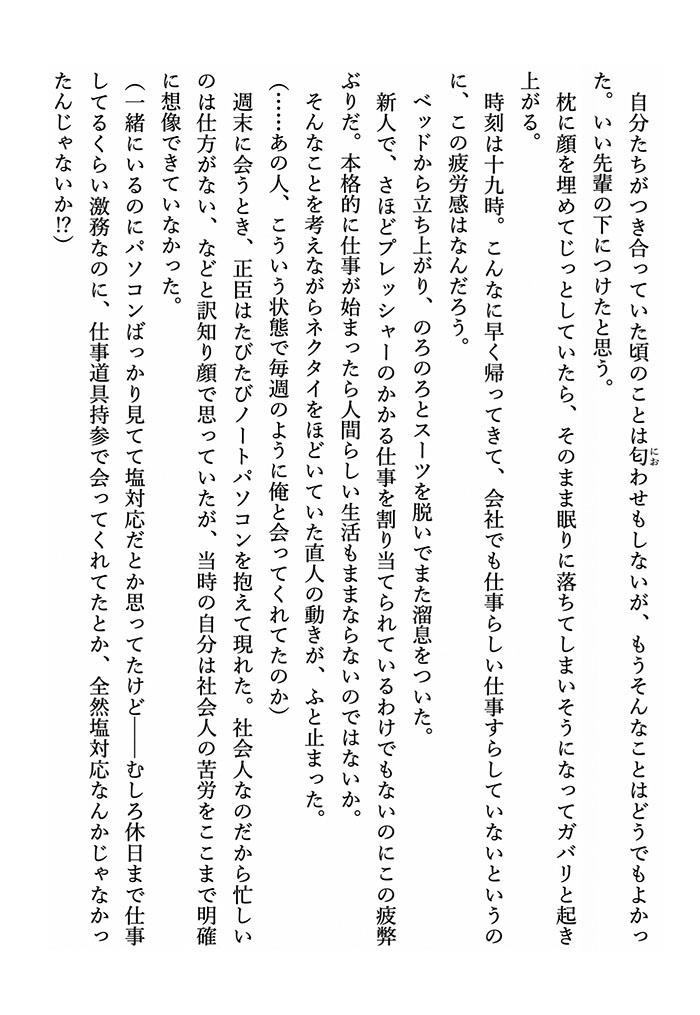 自分たちがつき合っていた頃のことは匂わせもしないが、もうそんなことはどうでもよかっ
にお
た。いい先輩の下につけたと思う。
枕に顔を埋めてじっとしていたら、そのまま眠りに落ちてしまいそうになってガバリと起き
上がる。
時刻は十九時。こんなに早く帰ってきて、会社でも仕事らしい仕事すらしていないというの
に、この疲労感はなんだろう。
ベッドから立ち上がり、のろのろとスーツを脱いでまた溜息をついた。
新人で、さほどプレッシャーのかかる仕事を割り当てられているわけでもないのにこの疲弊
ぶりだ。本格的に仕事が始まったら人間らしい生活もままならないのではないか。
そんなことを考えながらネクタイをほどいていた直人の動きが、ふと止まった。
(……あの人、こういう状態で毎週のように俺と会ってくれてたのか)
週末に会うとき、正臣はたびたびノートパソコンを抱えて現れた。社会人なのだから忙しい
のは仕方がない、などと訳知り顔で思っていたが、当時の自分は社会人の苦労をここまで明確
に想像できていなかった。
(一緒にいるのにパソコンばっかり見てて塩対応だとか思ってたけど――むしろ休日まで仕事
してるくらい激務なのに、仕事道具持参で会ってくれてたとか、全然塩対応なんかじゃなかっ
たんじゃないか!?)